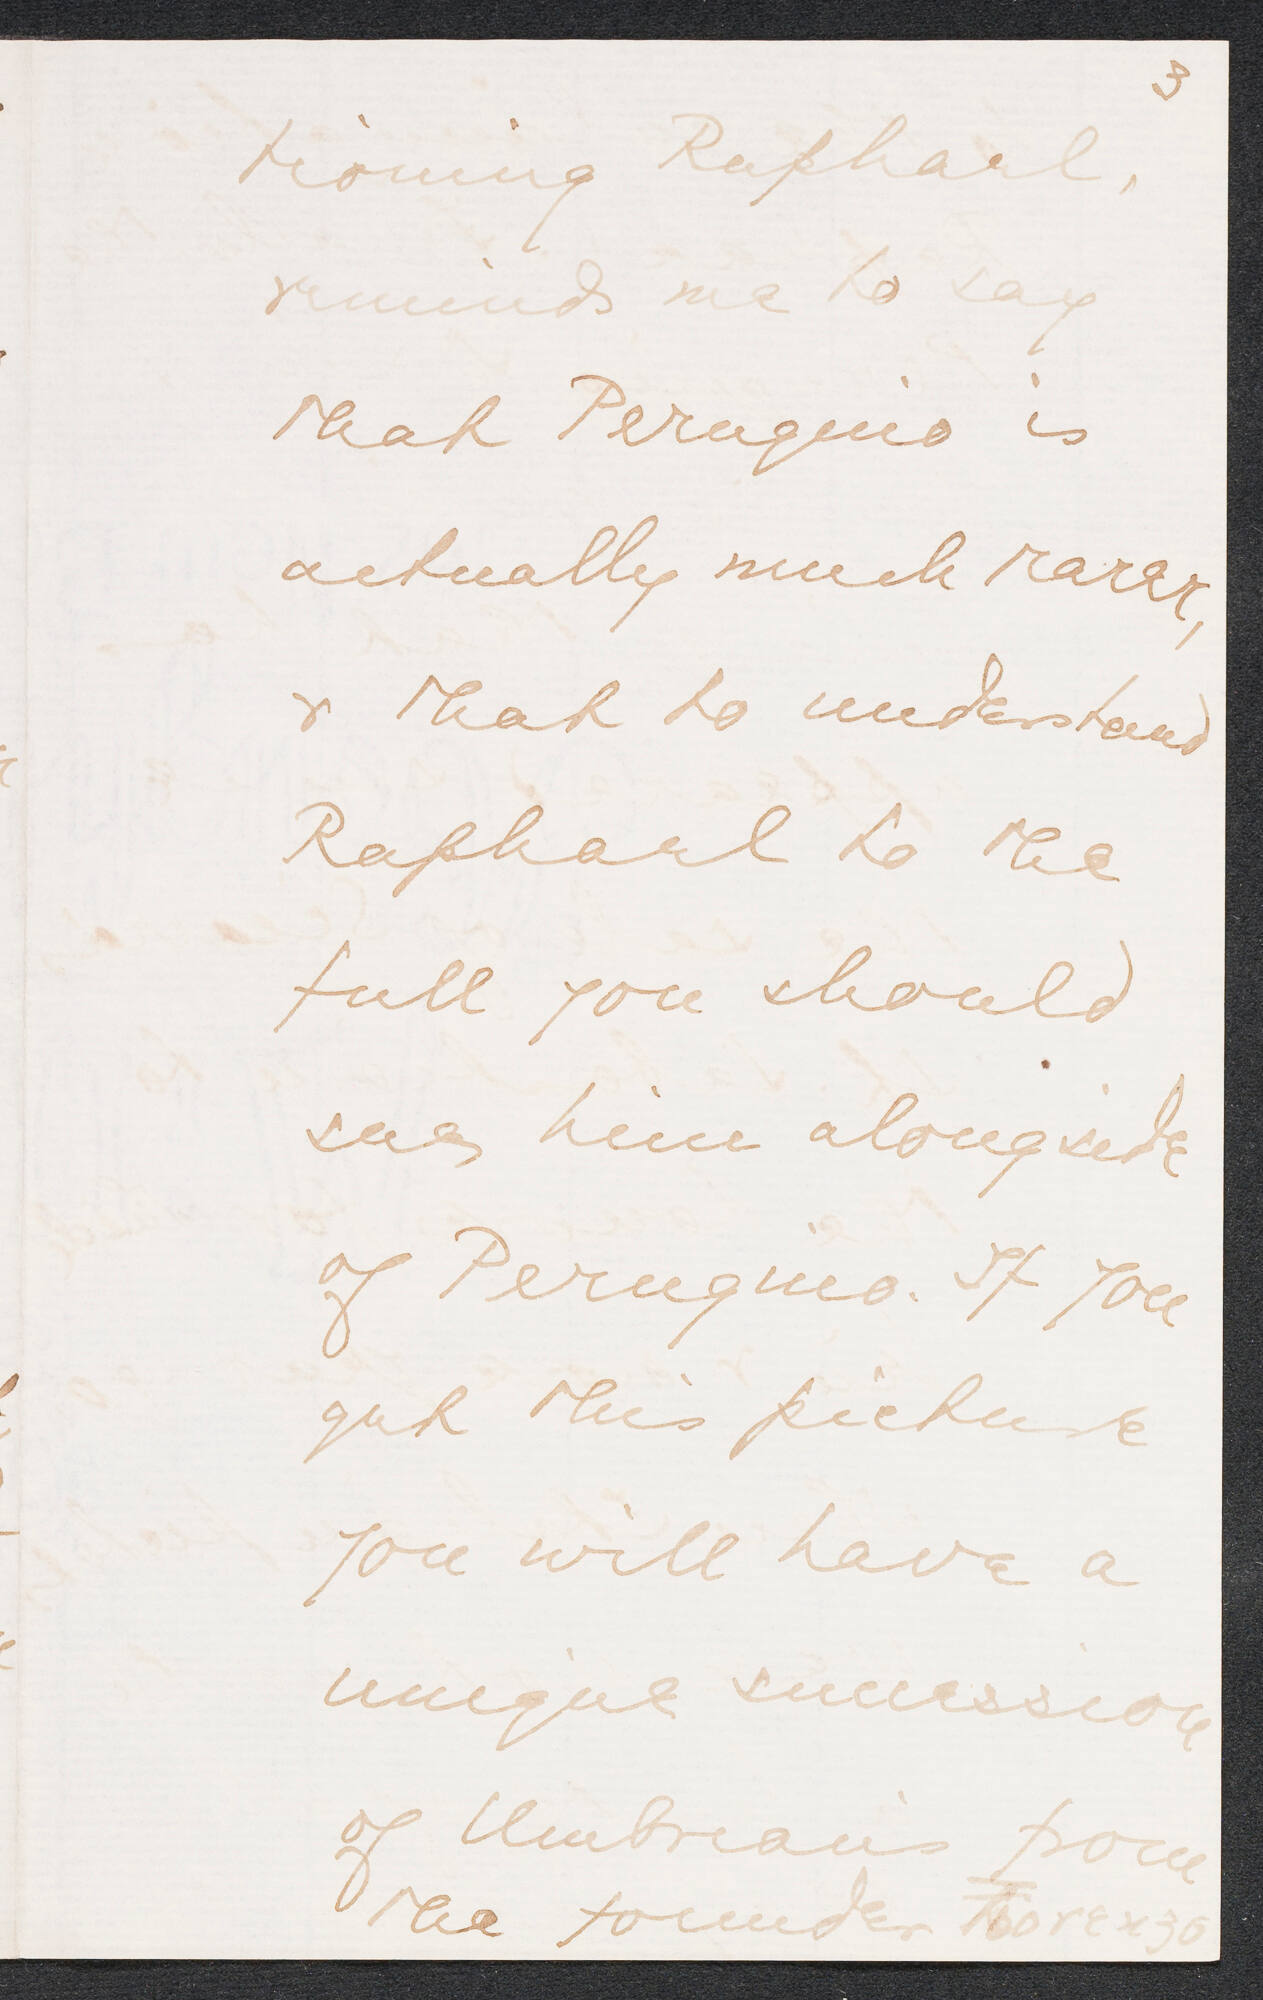 3
tioning Raphael,
reminds me to say
that Perugino is
actually much rarer,
& that to understand
Raphael to the
full you should
see him alongside
of Perugino. If you
get this picture
you will have a
unique succession
of Umbrians from
the founder Fiorenzo